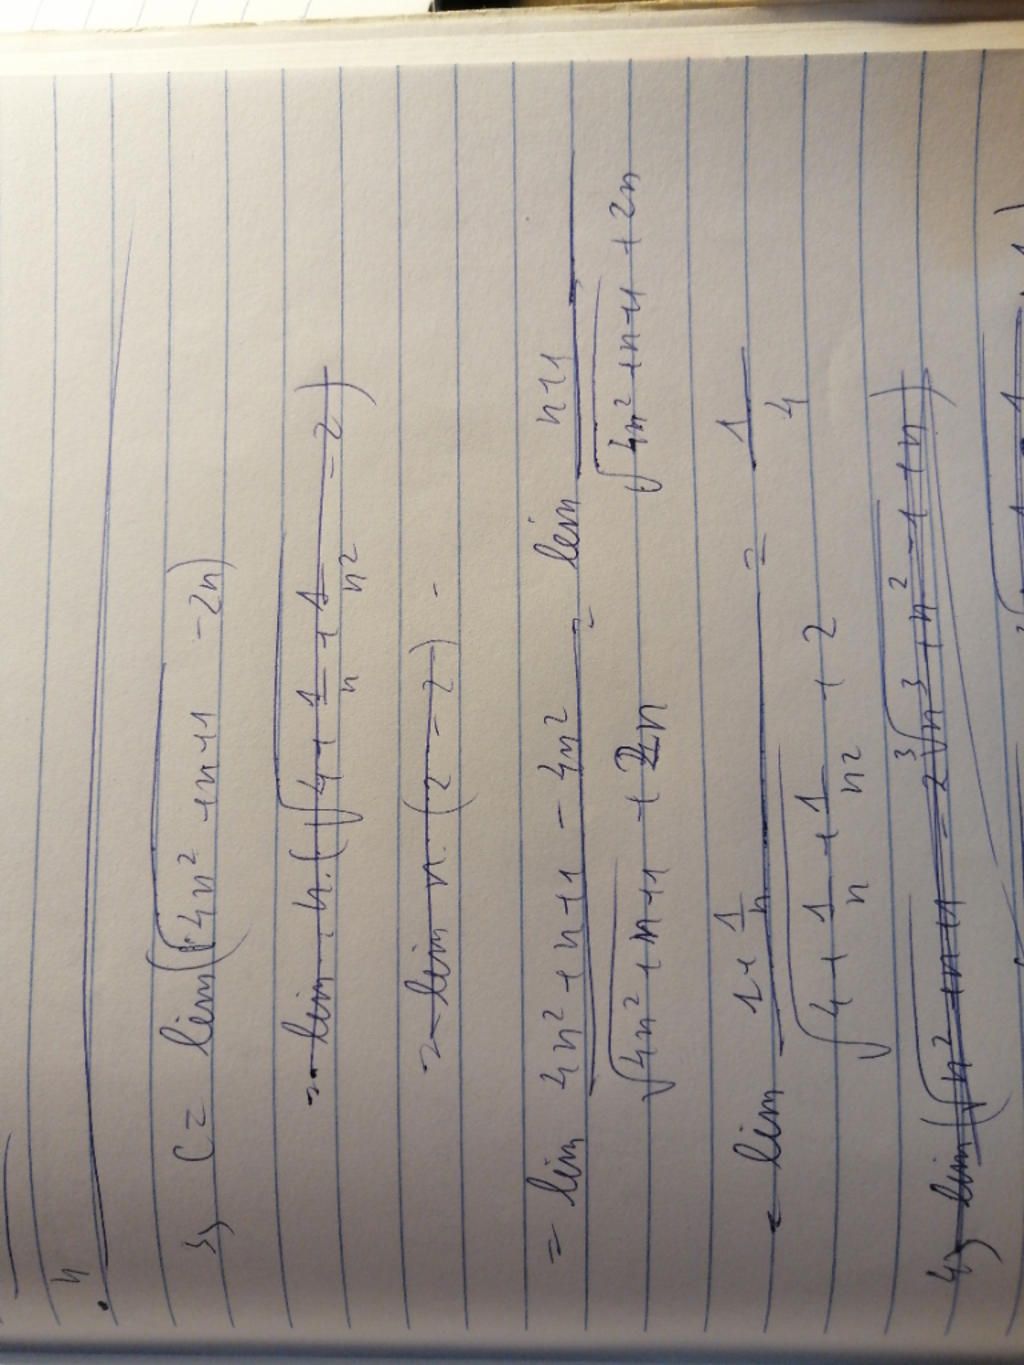 3) C = lim(√(4n² + n + 1) - 2n)
= lim n.(√(4 + 1/n + 1/n²) - 2)
= lim n.(2 - 2)
= lim (4n² + n + 1 - 4n²)/(√(4n² + n + 1) + 2n) = lim (n + 1)/(√(4n² + n + 1) + 2n)
= lim (1 + 1/n)/(√(4 + 1/n + 1/n²) + 2) = 1/4
4) lim(√(n² + n + 1) - 2∛(n³ + n² - 1) + n)